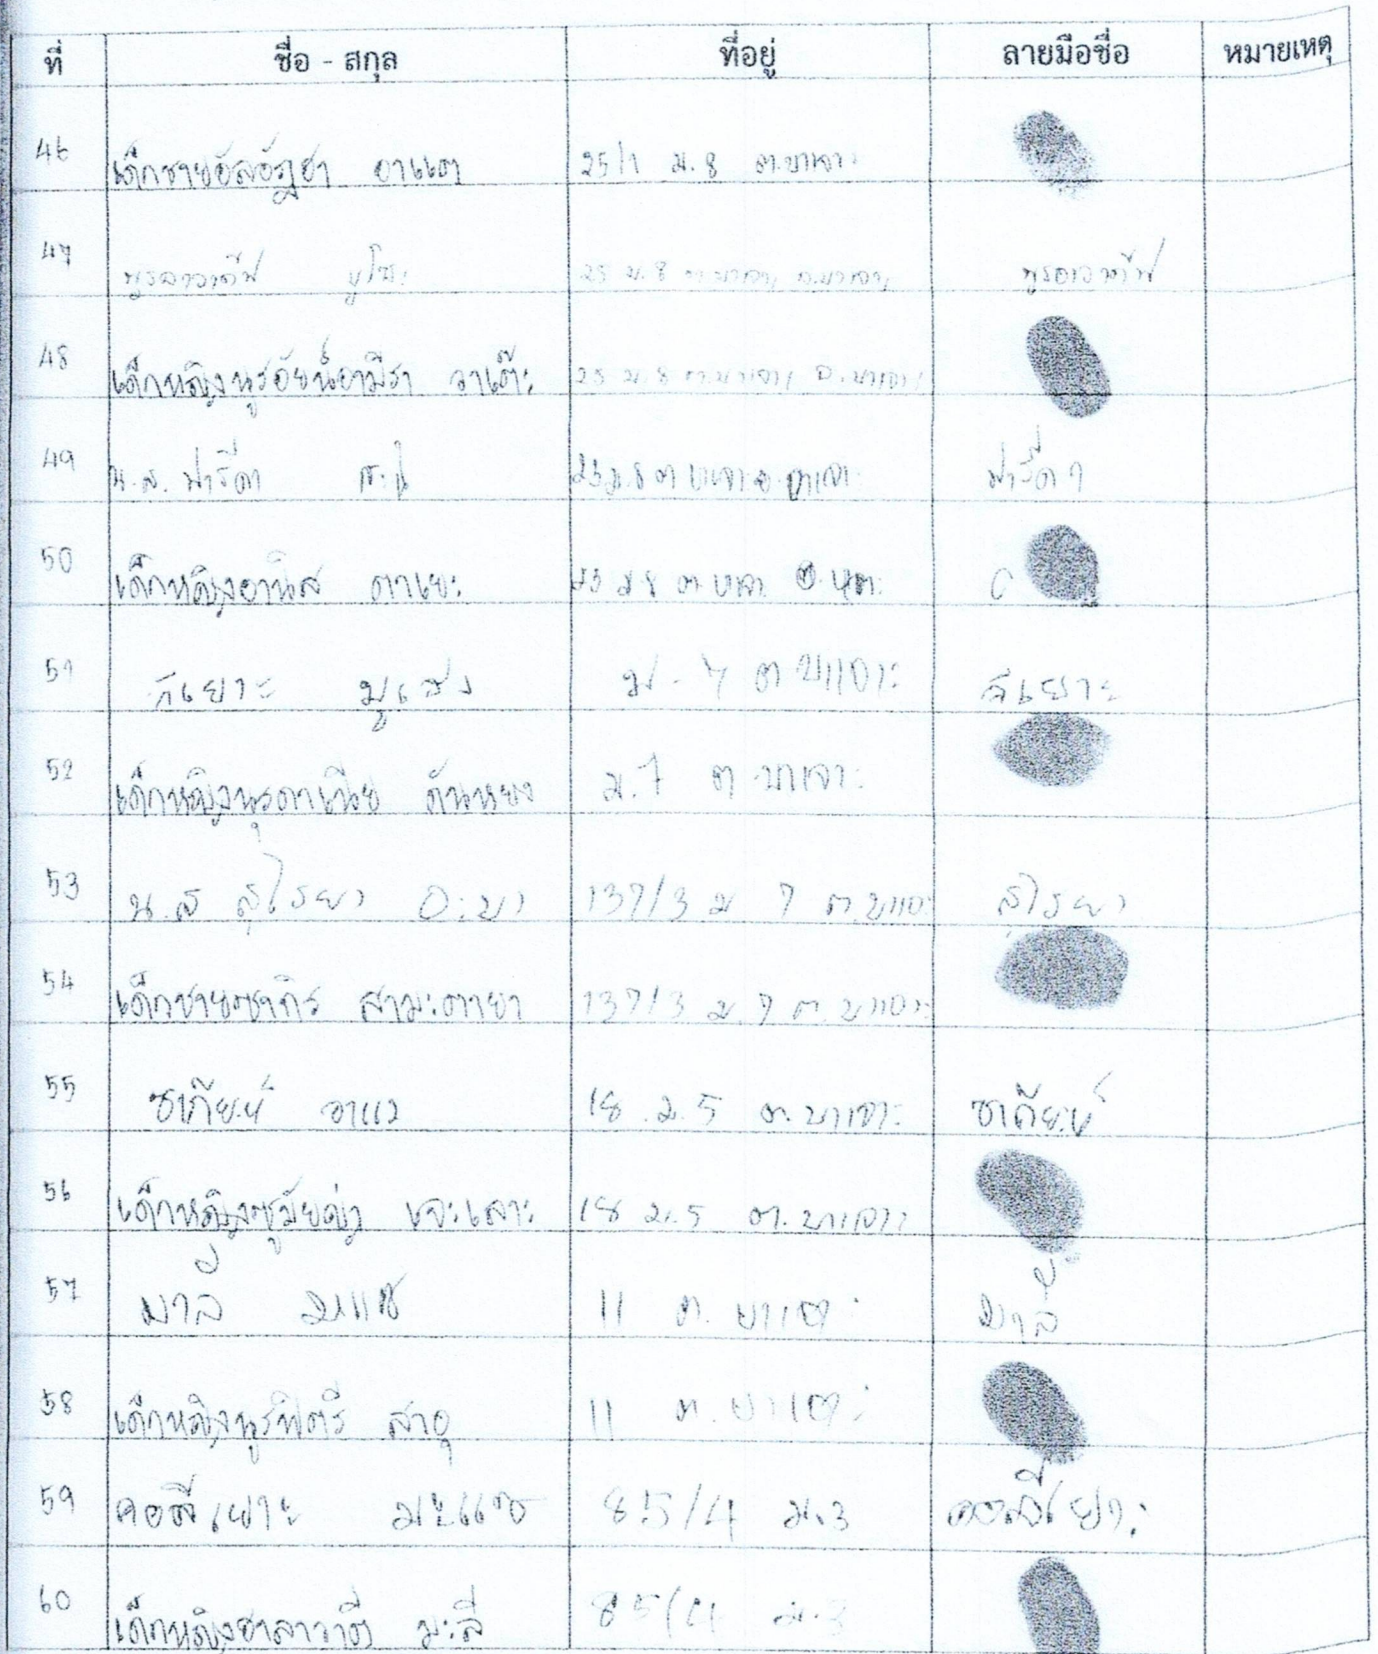 ที่ ชื่อ - สกุล ที่อยู่ ลายมือชื่อ หมายเหตุ
46 เด็กชายอัลอัฎฮา อาแด 25/1 ม.8 ต.บาเจาะ
47 25 ม.8 ต.บาเจาะ อ.บาเจาะ
48 เด็กหญิงนูรอัยน์อามีรา วาเด๊ะ 25 ม.8 ต.บาเจาะ อ.บาเจาะ
49 น.ส. ฟารีดา 23 ม.8 ต.บาเจาะ อ.บาเจาะ ฟารีดา
50 เด็กหญิงอานิส ตาเยะ 23 ม.8 ต.บาเจาะ
51 ม.7 ต.บาเจาะ
52 เด็กหญิงนูรดาเนีย ตันหยง ม.7 ต.บาเจาะ
53 น.ส สุไรยา อ:มา 137/3 ม.7 ต.บาเจาะ สุไรยา
54 เด็กชายซากิร สามะตายา 137/3 ม.7 ต.บาเจาะ
55 ซากียะห์ อาแว 18 ม.5 ต.บาเจาะ ซากียะห์
56 เด็กหญิงซูมัยย่ะ เจะเลาะ 18 ม.5 ต.บาเจาะ
57 11 ต.บาเจาะ
58 เด็กหญิงนูรฟิตรี สาอุ 11 ต.บาเจาะ
59 คอลีเยาะ มะแซ 85/4 ม.3 คอลีเยาะ
60 เด็กหญิงฮาลาวาตี มะลี 85/4 ม.3